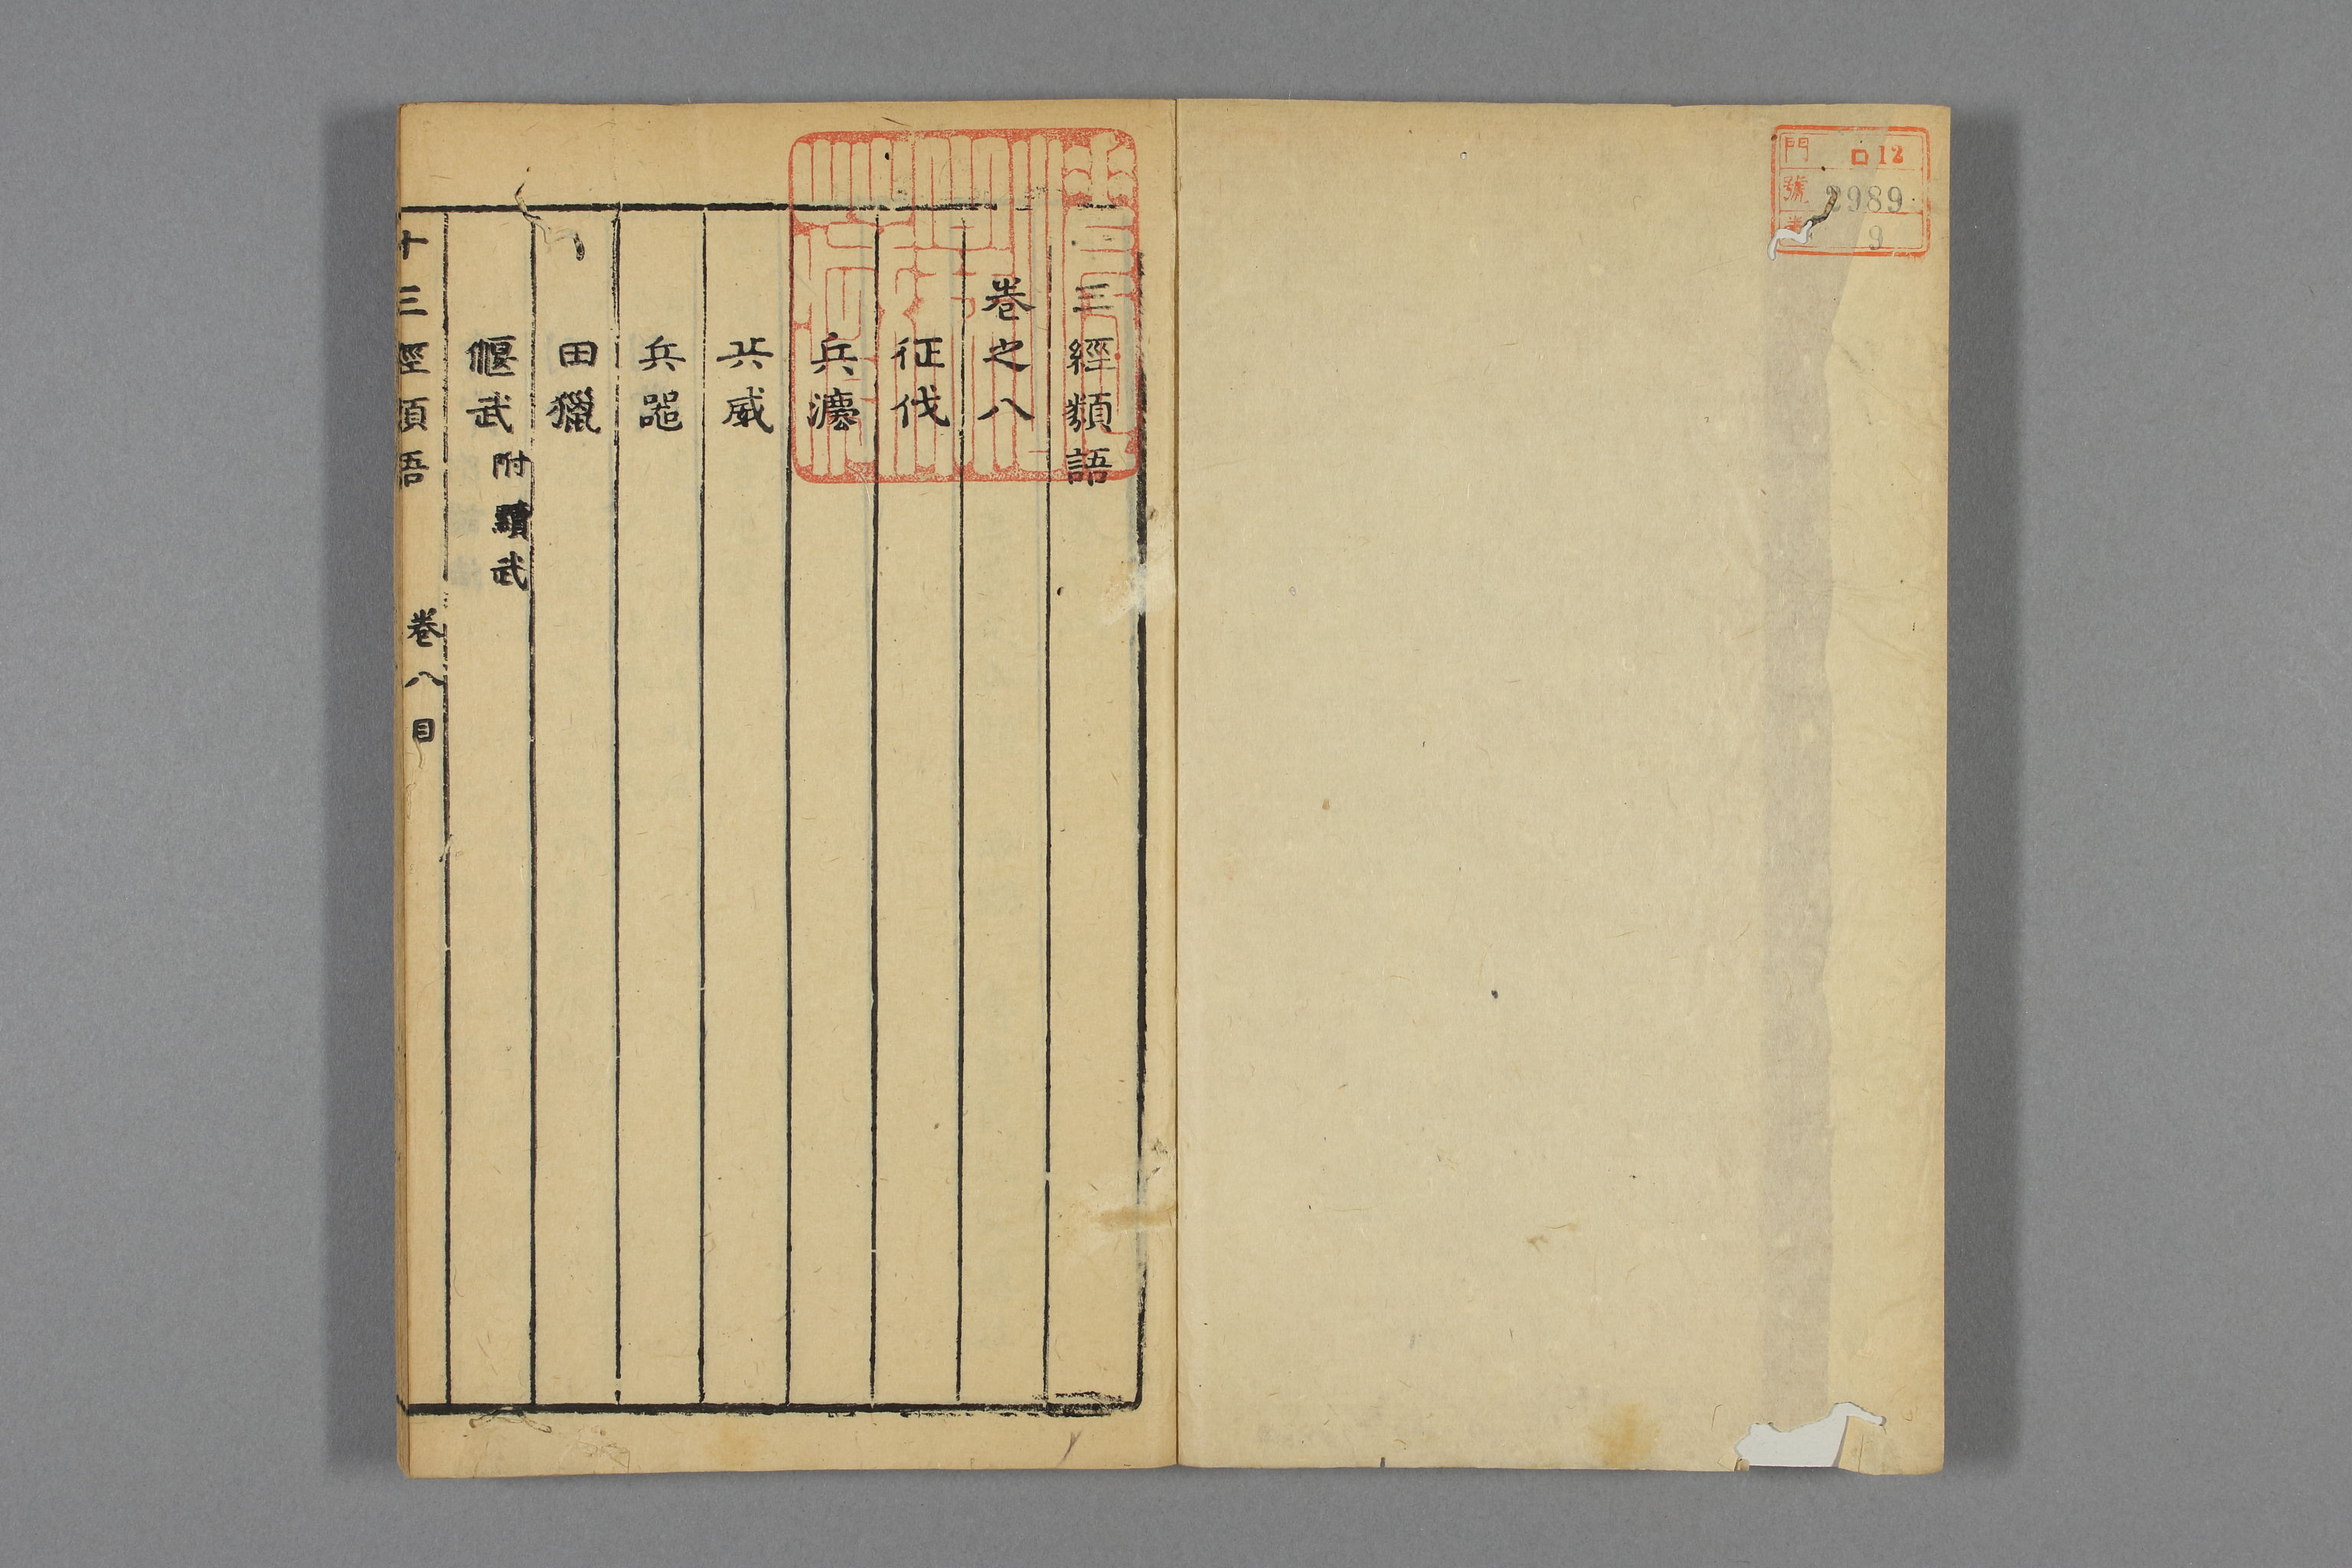 門 ロ12
號 2989
卷 9
三經類語
卷之八
征伐
兵灋
兵威
兵噐
田獵
偃武 附黷武
十三經類語 卷八 目